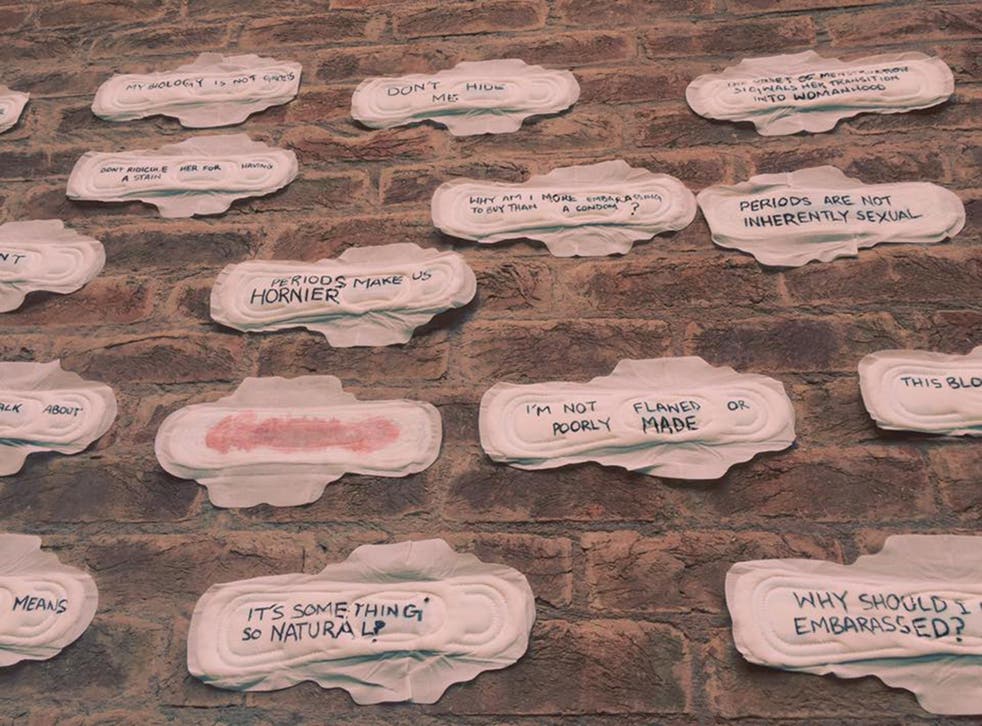 MY BIOLOGY IS NOT
DON'T HIDE
ME
SIGNALS HER TRANSITION
INTO WOMANHOOD
DON'T RIDICULE HER FOR HAVING
A STAIN
WHY AM I MORE EMBARASSING
TO BUY THAN A CONDOM?
PERIODS ARE NOT
INHERENTLY SEXUAL
PERIODS MAKE US
HORNIER
ABOUT
I'M NOT FLAWED OR
POORLY MADE
THIS
MEANS
IT'S SOMETHING
SO NATURAL?
WHY SHOULD I
EMBARASSED?